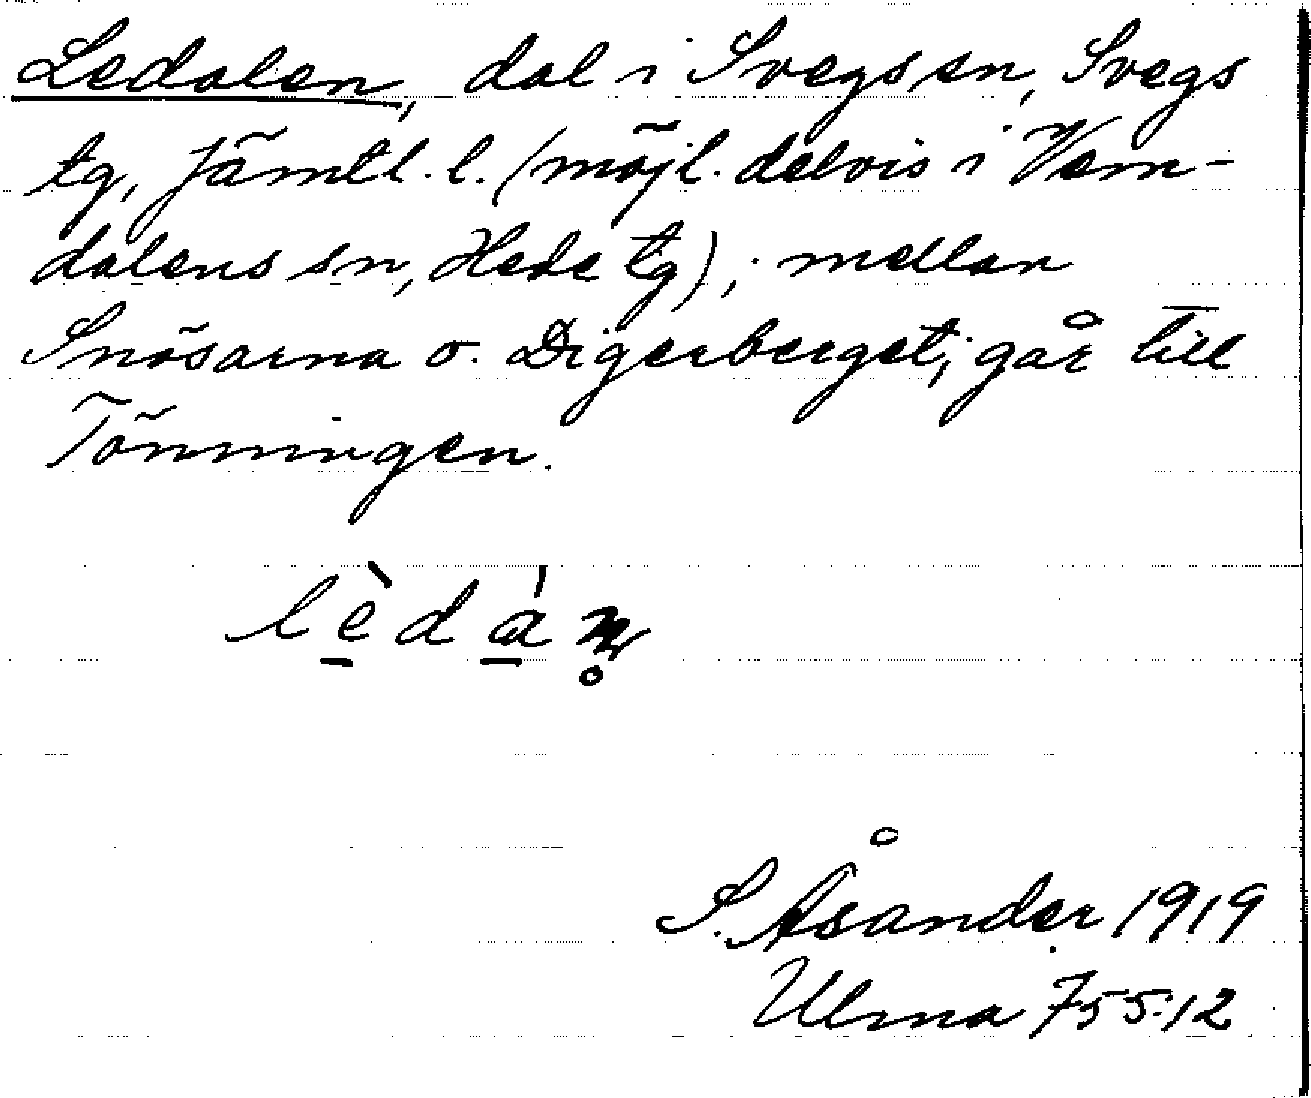 Ledalen, dal i Svegs sn, Svegs
tg, Jämtl. l. (möjl. delvis i Vem-
dalens sn, Hede tg); mellan
Snösarna o. Digerberget; går till
Tönningen.
lèdáṇ̥
S. Åsander 1919
Ulma 755:12